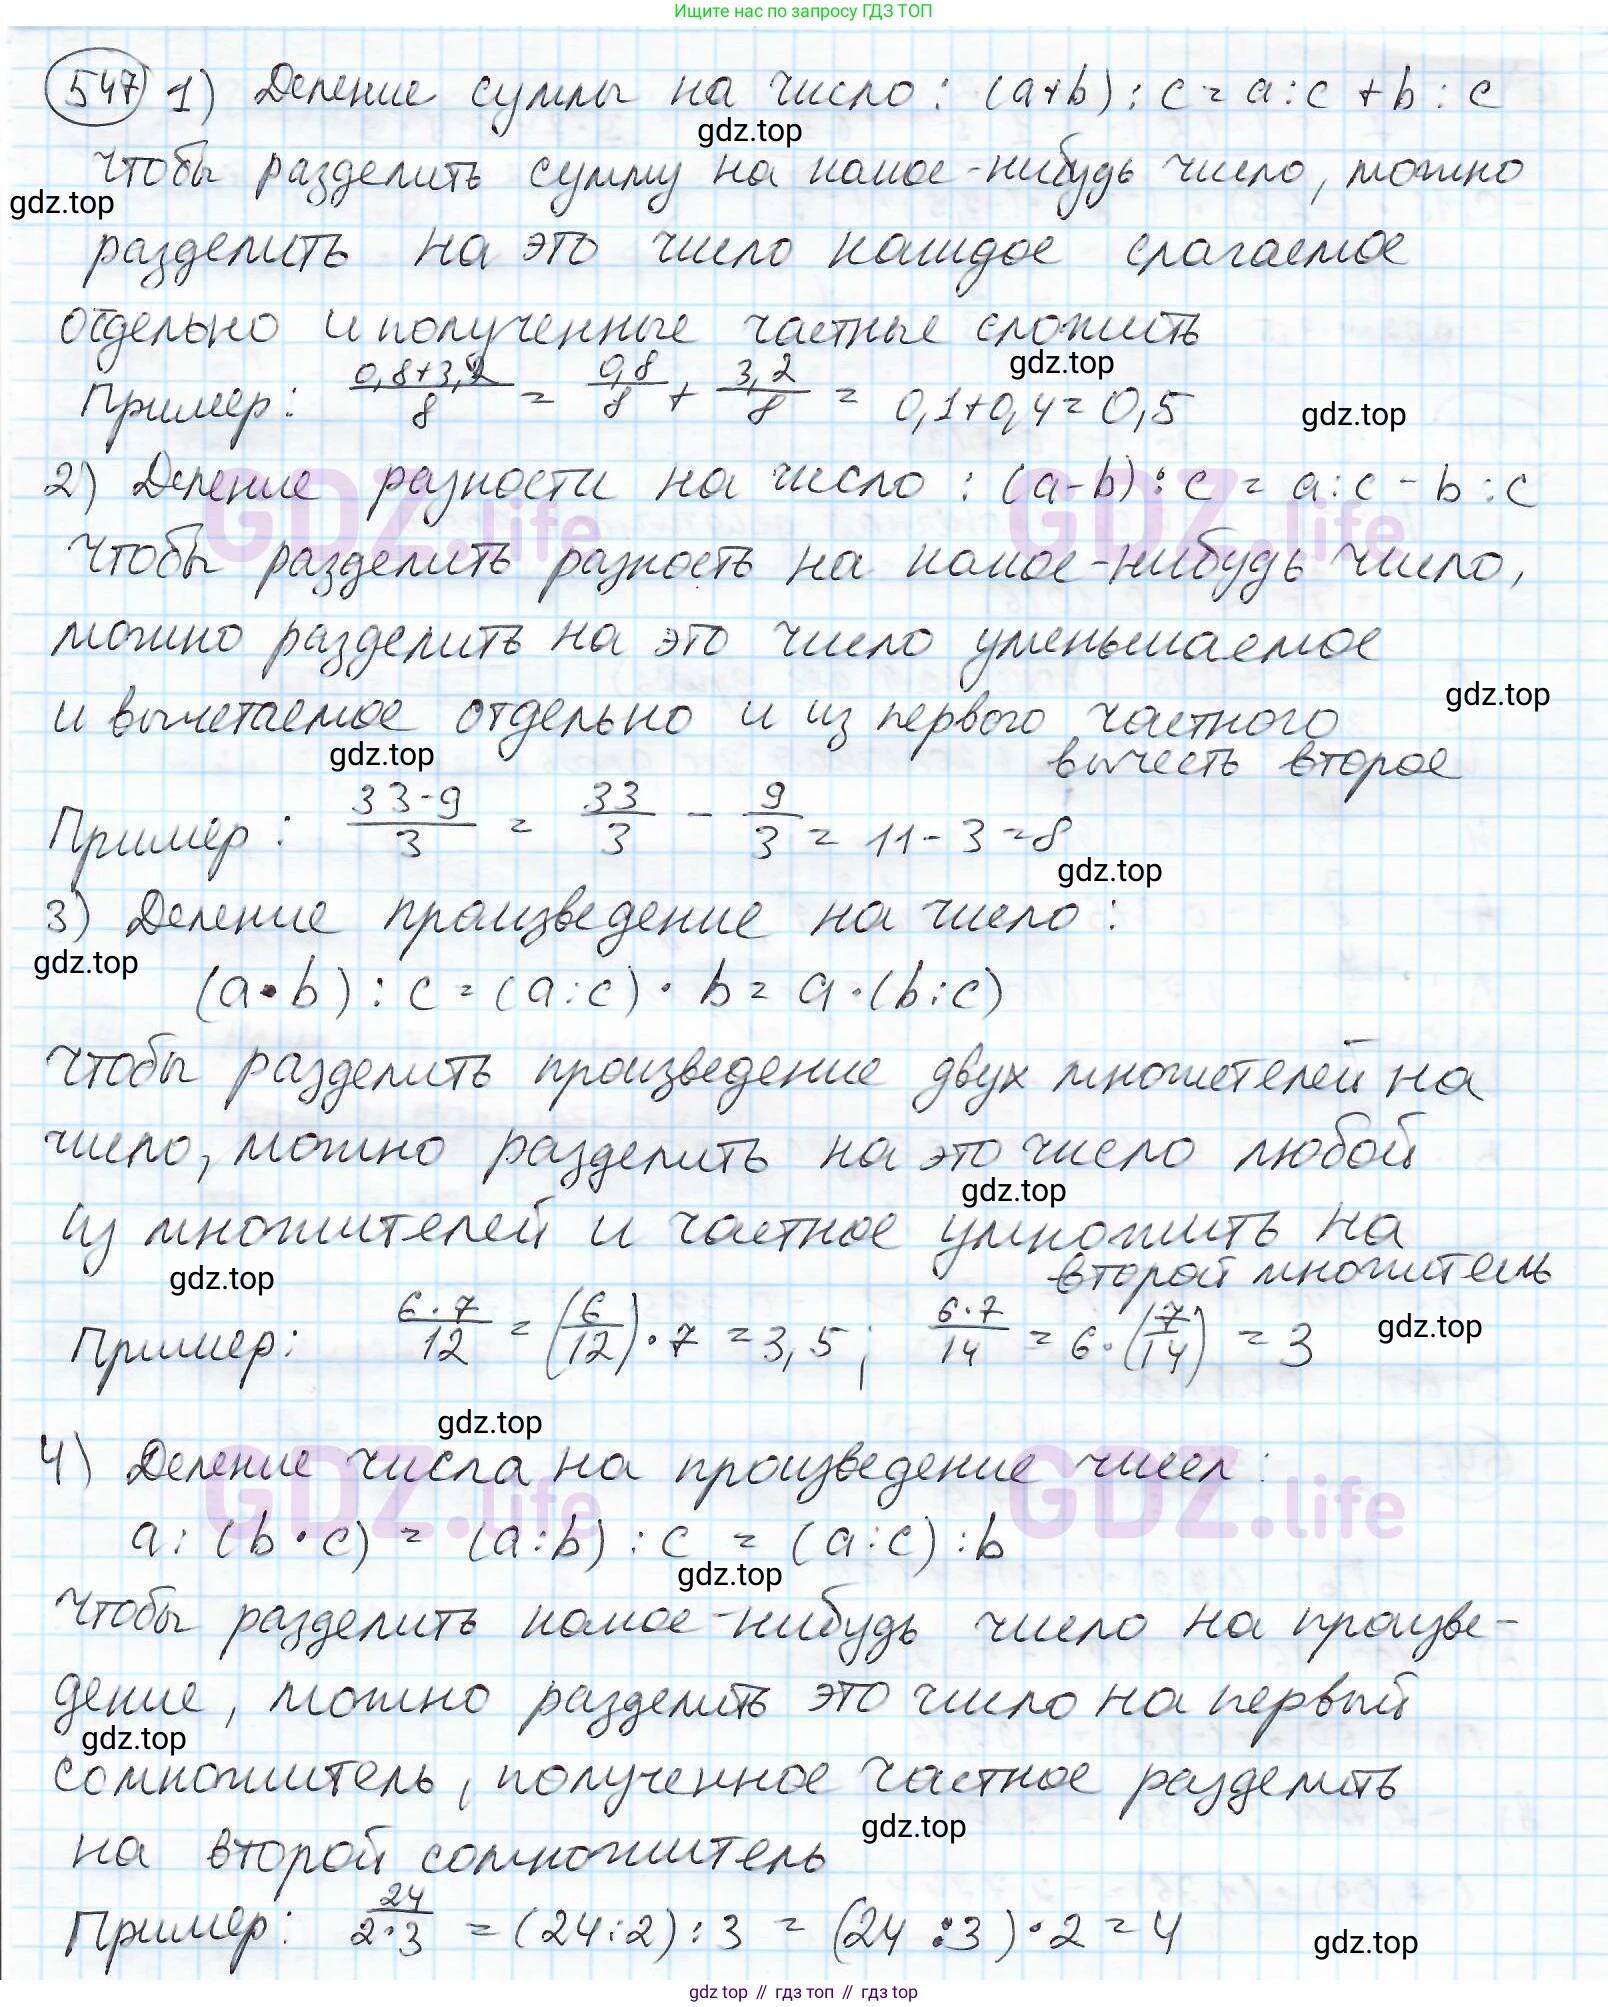 Ищите нас по запросу ГДЗ ТОП
547 1) Деление суммы на число: (a+b):c=a:c+b:c
gdz.top
Чтобы разделить сумму на какое-нибудь число, можно
gdz.top
разделить на это число каждое слагаемое
отдельно и полученные частные сложить
gdz.top
Пример: (0,8+3,2)/8 = 0,8/8 + 3,2/8 = 0,1+0,4=0,5
gdz.top
2) Деление разности на число: (a-b):c=a:c-b:c
GDZ.life GDZ.life
Чтобы разделить разность на какое-нибудь число,
можно разделить на это число уменьшаемое
gdz.top
и вычетаемое отдельно и из первого частного
вычесть второе
gdz.top
Пример: (33-9)/3 = 33/3 - 9/3 = 11-3=8
gdz.top
3) Деление произведение на число:
gdz.top
(a·b):c=(a:c)·b=a·(b:c)
Чтобы разделить произведение двух множителей на
число, можно разделить на это число любой
gdz.top
из множителей и частное умножить на
второй множитель
gdz.top
Пример: 6·7/12 = (6/12)·7=3,5; 6·7/14 = 6·(7/14) = 3
gdz.top
gdz.top
4) Деление числа на произведение чисел:
GDZ.life GDZ.life
a:(b·c) = (a:b):c = (a:c):b
gdz.top
Чтобы разделить какое-нибудь число на произве-
дение, можно разделить это число на первый
gdz.top
сомножитель, полученное частное разделить
gdz.top
на второй сомножитель
Пример: 24/2·3 = (24:2):3 = (24:3)·2=4
gdz.top
gdz top // гдз топ // gdz top